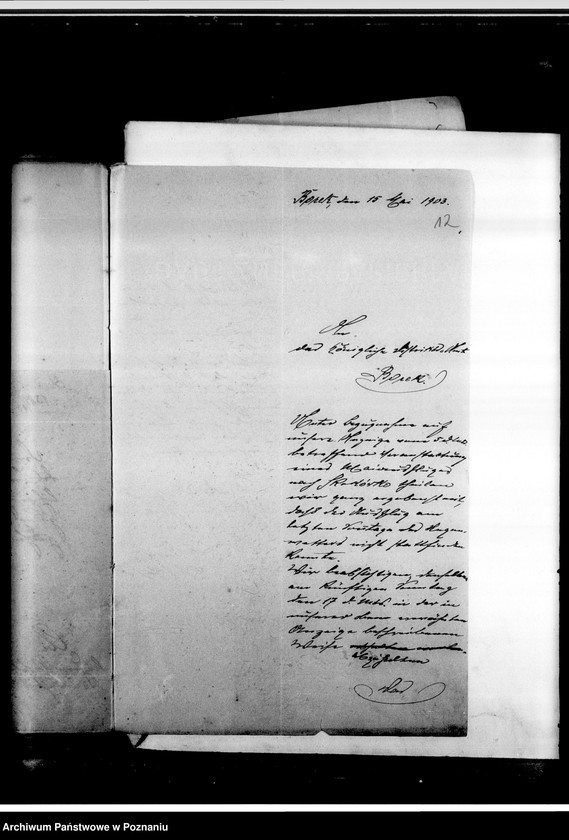 Borek, den 15 Mai 1903.
12
An
das Königliche Distrikts-Amt
Borek.
Unter Bezugnahme auf
unsere Anzeige vom 5 d. Mts.
betreffend Veranstaltung
eines Maiausfluges
nach theilen
wir ganz ergebenst mit,
daß der Ausflug am
letzten Sonntage des Regen-
wetters nicht stattfinden
konnte.
Wir beabsichtigen, denselben
am künftigen Sonntag
den 17 d. Mts. in der in
unserer oben erwähnten
Anzeige beschriebenen
Weise
abzuhalten
Archiwum Państwowe w Poznaniu